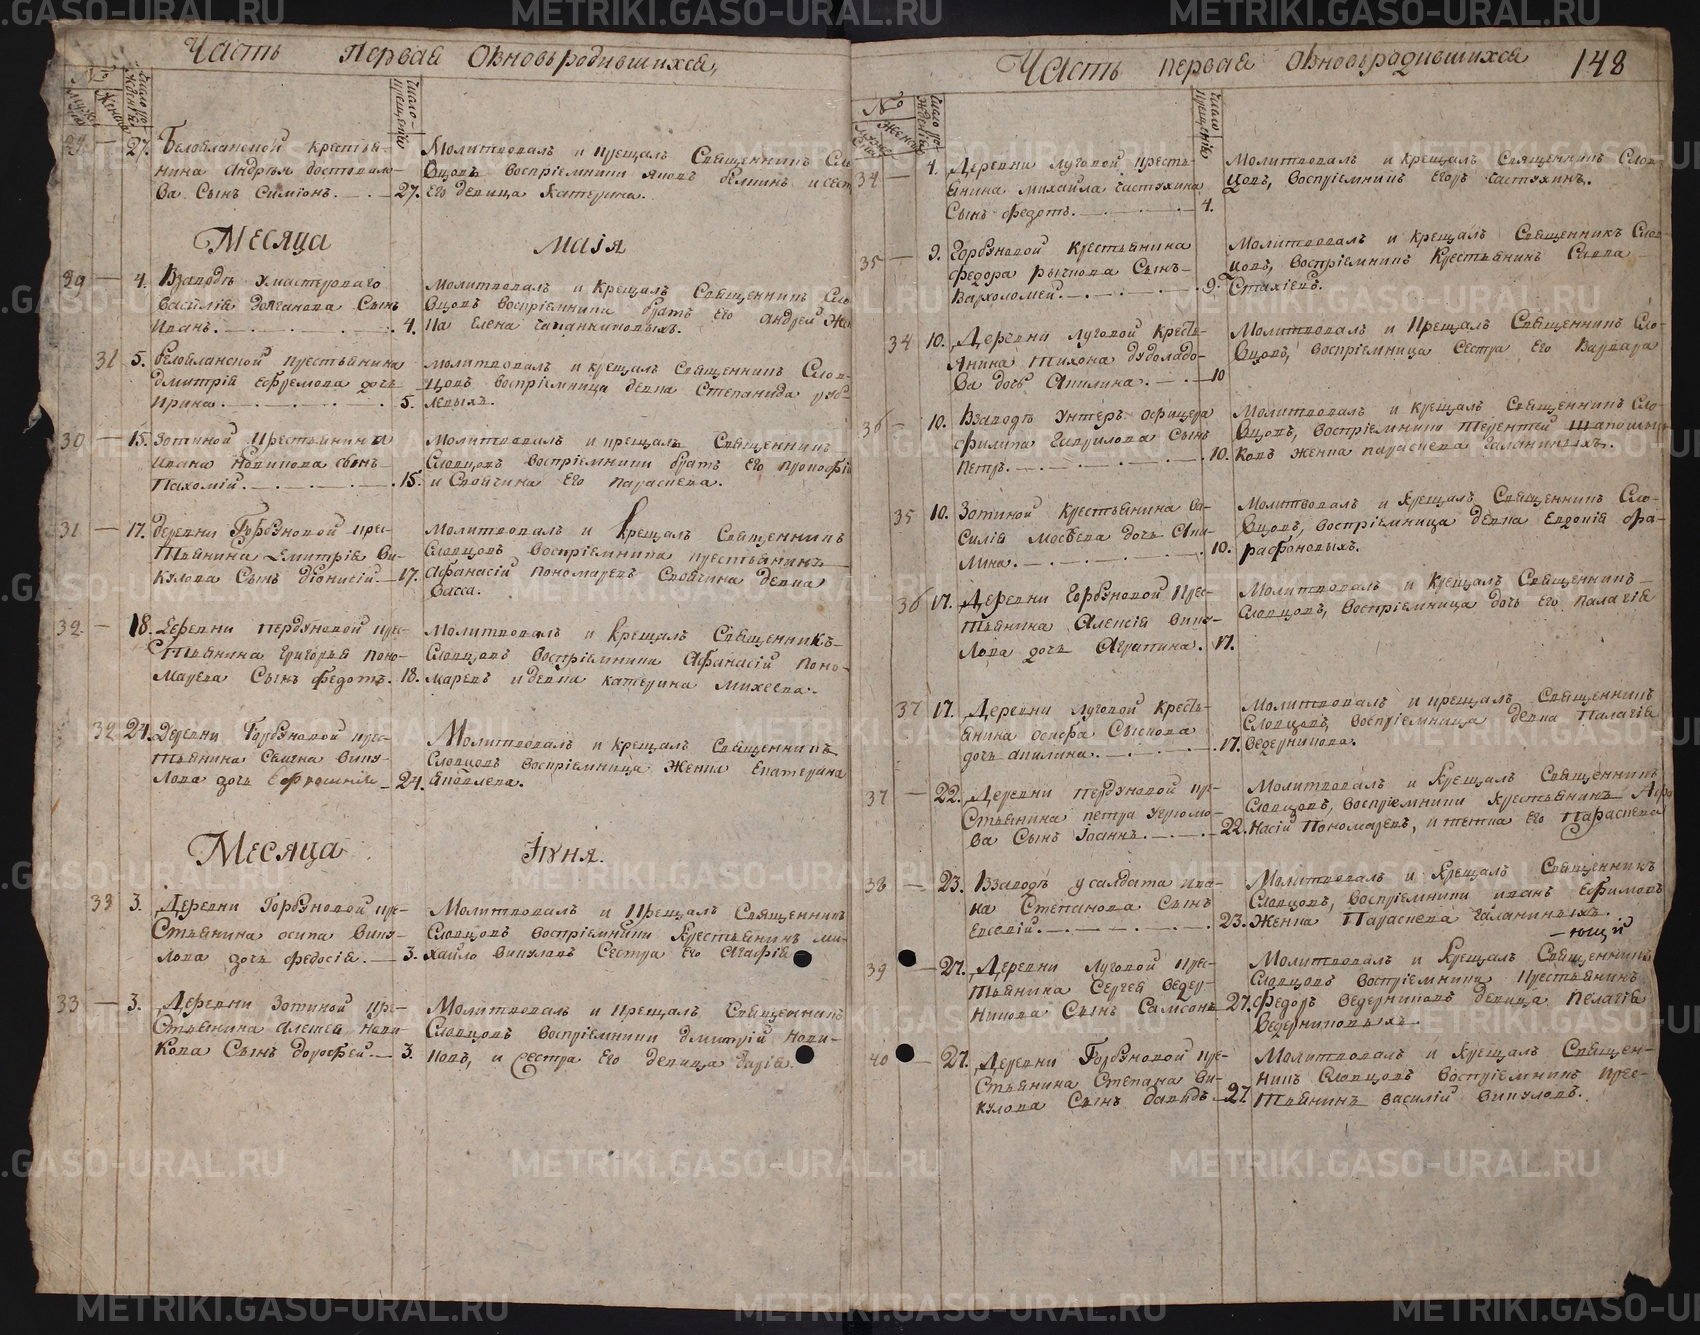 Часть первая Оѣновьродившихся,
28 — 27. Белобланской крестья-
нина Андрѣя
ва Сынъ Симіонъ. — 27.
Молитвовалъ и крещалъ Священникъ Сло
вцовъ воспріемники Яковъ и сест
Его девица Катерина.
Месяца Маія
29 — 4. Взаводѣ Умастероваго
Василія Сынъ
Иванъ. 4.
Молитвовалъ и Крещалъ Священникъ Сло
вцовъ воспріемники братъ Его Андрей Же
на Елена
31 5. Белобланской крестьянина
Дмитрія Ефремова дочь
Ирина. 5.
Молитвовалъ и крещалъ Священникъ Слов-
цовъ воспріемница девка Степанида
левыхъ.
30 — 15. Зотиной Крестьянина
Ивана Новикова сынъ
Пахомій. 15.
Молитвовалъ и крещалъ Священникъ
Словцовъ воспріемники братъ Его Прокофій
и Своячина Его Параскева.
31 — 17. Деревни Горбуновой кре-
стьянина Димитрія Ви-
кулова Сынъ Діонисій. — 17.
Молитвовалъ и Крещалъ Священникъ
Словцовъ воспріемника крестьянинъ
Афанасій Пономаревъ Своячина девка
Васса.
32 — 18. Деревни Пердуновой кре-
стьянина Григорья Поно-
марева Сынъ Федотъ. 18.
Молитвовалъ и Крещалъ Священникъ
Словцовъ воспріемники Афанасій Поно-
маревъ и девка Катерина Михеева.
32 24. Деревни Горбуновой кре-
стьянина Савина Вику-
лова дочь Ефросинія — 24.
Молитвовалъ и крещалъ Священникъ
Словцовъ воспріемница Женка Екатерина
Яковлева.
Месяца Іуня.
33 3. Деревни Горбуновой кре-
стьянина Осипа Вику-
лова дочь Федосія. — 3.
Молитвовалъ и Крещалъ Священникъ
Словцовъ воспріемники Крестьянинъ Ми-
хайло Викуловъ Сестра Его Агафія
33 — 3. Деревни Зотиной кре-
стьянина Алексея Нови-
кова Сынъ Дорофей. — 3.
Молитвовалъ и крещалъ Священникъ
Словцовъ воспріемники Дмитрій Нови-
ковъ, и Сестра Его девица Дарія.
Часть первая Оѣновьрадившихся 148
34 — 4. Деревни Луговой кресть-
янина Михайла Частухина
Сынъ Федотъ. 4.
Молитвовалъ и крещалъ Священникъ Слов-
цовъ, воспріемникъ Егоръ Частухинъ.
35 — 9. Горбуновой Крестьянина
Федора Рычкова Сынъ
Вархоломей. 9.
Молитвовалъ и крещалъ Священникъ Слов-
цовъ, воспріемникъ Крестьянинъ Савва
Стахіевъ.
34 10. Деревни Луговой Кресть-
янина Тихона
ва дочь Акилина. 10
Молитвовалъ и Крещалъ Священникъ Сло-
вцовъ, воспріемница Сестра Его Варвара
36 — 10. Взаводѣ Унтеръ Офицера
Филипа Гаврилова Сынъ
Петръ. 10.
Молитвовалъ и крещалъ Священникъ Сло-
вцовъ, воспріемники Терентей Шапошни
ковъ женка Параскева Галаниныхъ.
35 10. Зотиной Крестьянина Ва-
силія Мосеева дочь Аки-
лина. 10.
Молитвовалъ и крещалъ Священникъ Сло-
вцовъ, воспріемница девка Евдокія Фра-
36 17. Деревни Горбуновой Крес-
тьянина Алексія Вику-
лова дочь Аграпина. 17.
Молитвовалъ и Крещалъ Священникъ
Словцовъ, воспріемница дочь Его Палагія
37 17. Деревни Луговой Кресть-
янина Осифа Сыскова
дочь Акилина. 17.
Молитвовалъ и крещалъ Священникъ
Словцовъ, воспріемница девка Палагія
Ведерникова.
37 — 22. Деревни Пердуновой кре-
стьянина Петра Угрюмо-
ва Сынъ Іоаннъ. 22.
Молитвовалъ и Крещалъ Священникъ
Словцовъ, воспріемники Крестьянинъ Афа
насій Пономаревъ, и тетка Его Параскева
38 — 23. Взаводѣ у салдата Ива-
на Степанова Сынъ
Евсевій. 23.
Молитвовалъ и Крещалъ Священникъ
Словцовъ, воспріемники Иванъ Ефимовъ
Женка Параскева Галаниныхъ.
39 — 27. Деревни Луговой кре-
стьянина Сергея Ведер-
никова Сынъ Самсонъ 27.
Молитвовалъ и Крещалъ Священникъ
Словцовъ воспріемники Крестьянинъ
Федоръ Ведерниковъ девица Пелагія
Ведерниковыхъ
40 — 27. Деревни Горбуновой кре-
стьянина Степана Ви-
кулова Сынъ Давыдъ 27.
Молитвовалъ и Крещалъ Священ-
никъ Словцовъ воспріемникъ крес-
тьянинъ Василій Викуловъ.
METRIKI.GASO-URAL.RU